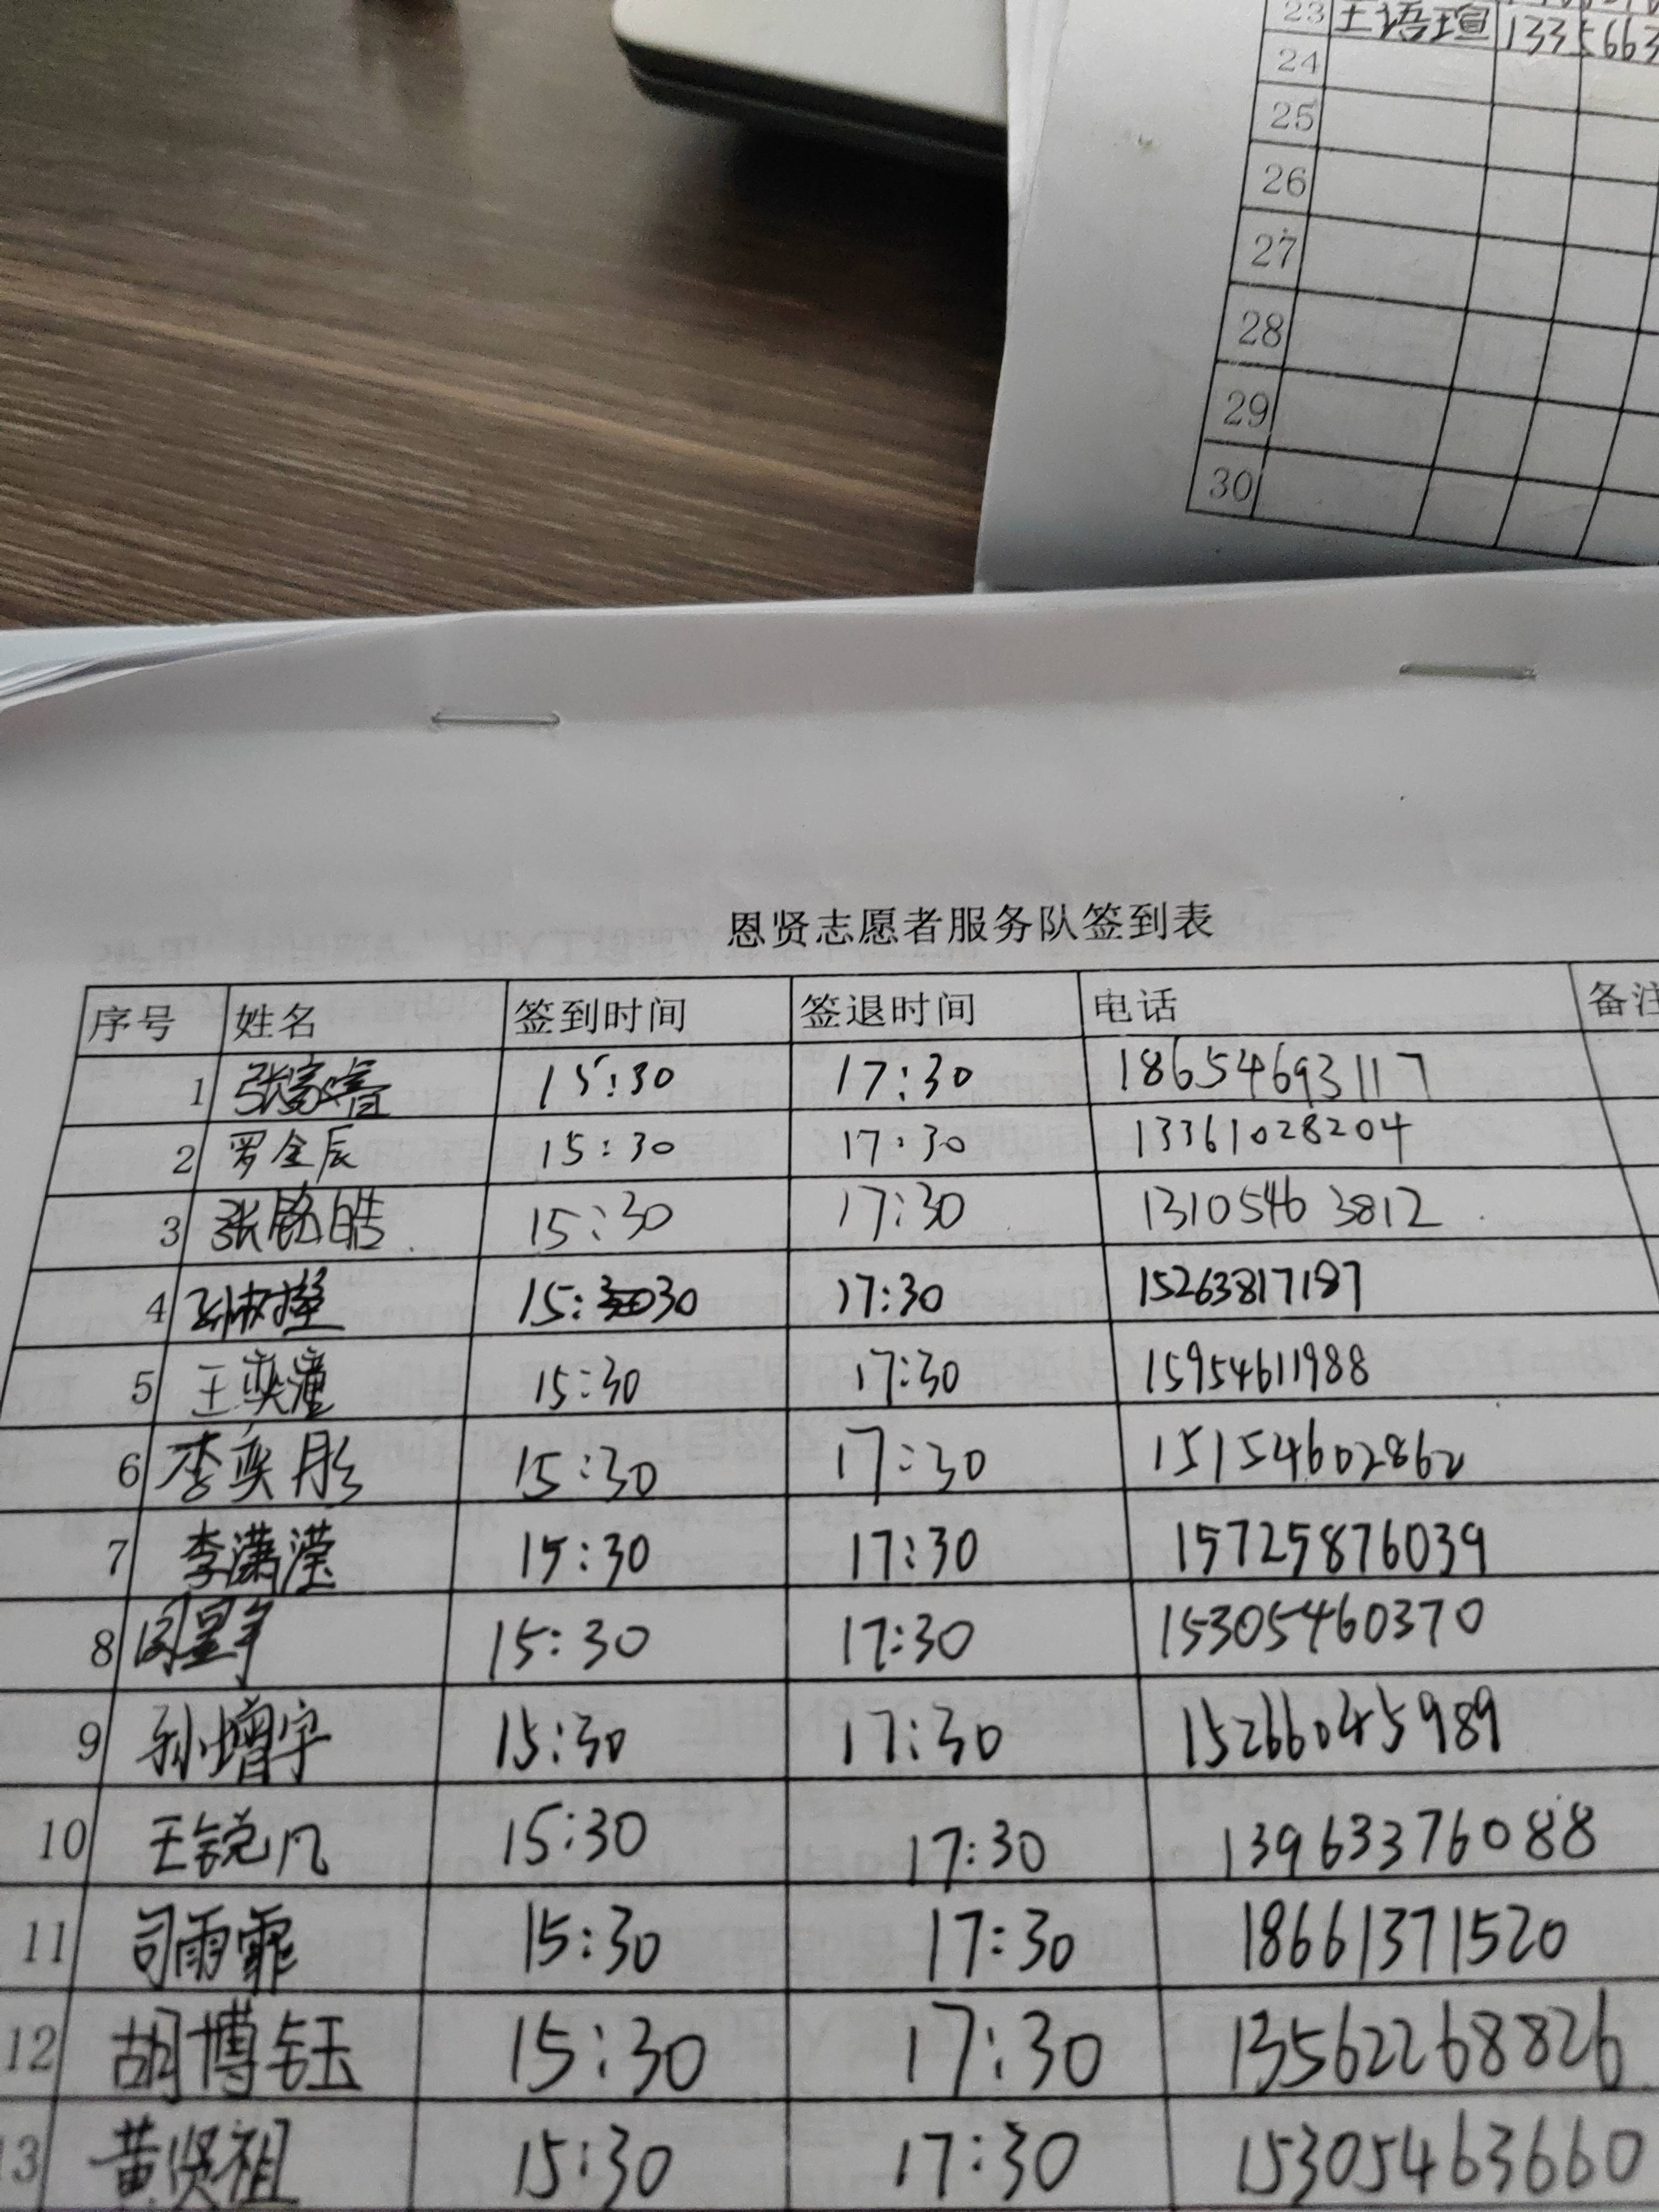 23 王语瑄 1335663
24
25
26
27
28
29
30
恩贤志愿者服务队签到表
序号 姓名 签到时间 签退时间 电话 备注
1 张睿 15:30 17:30 18654693117
2 罗金辰 15:30 17:30 13361028204
3 张铭皓 15:30 17:30 13105463812
4 15:30 17:30 15263817187
5 王奕潼 15:30 17:30 15954611988
6 李奕彤 15:30 17:30 15154602862
7 李潇滢 15:30 17:30 15725876039
8 15:30 17:30 15305460370
9 孙增宇 15:30 17:30 15266045989
10 王锐凡 15:30 17:30 13963376088
11 司雨霏 15:30 17:30 18661371520
12 胡博钰 15:30 17:30 13562268826
13 黄贤祖 15:30 17:30 15305463660